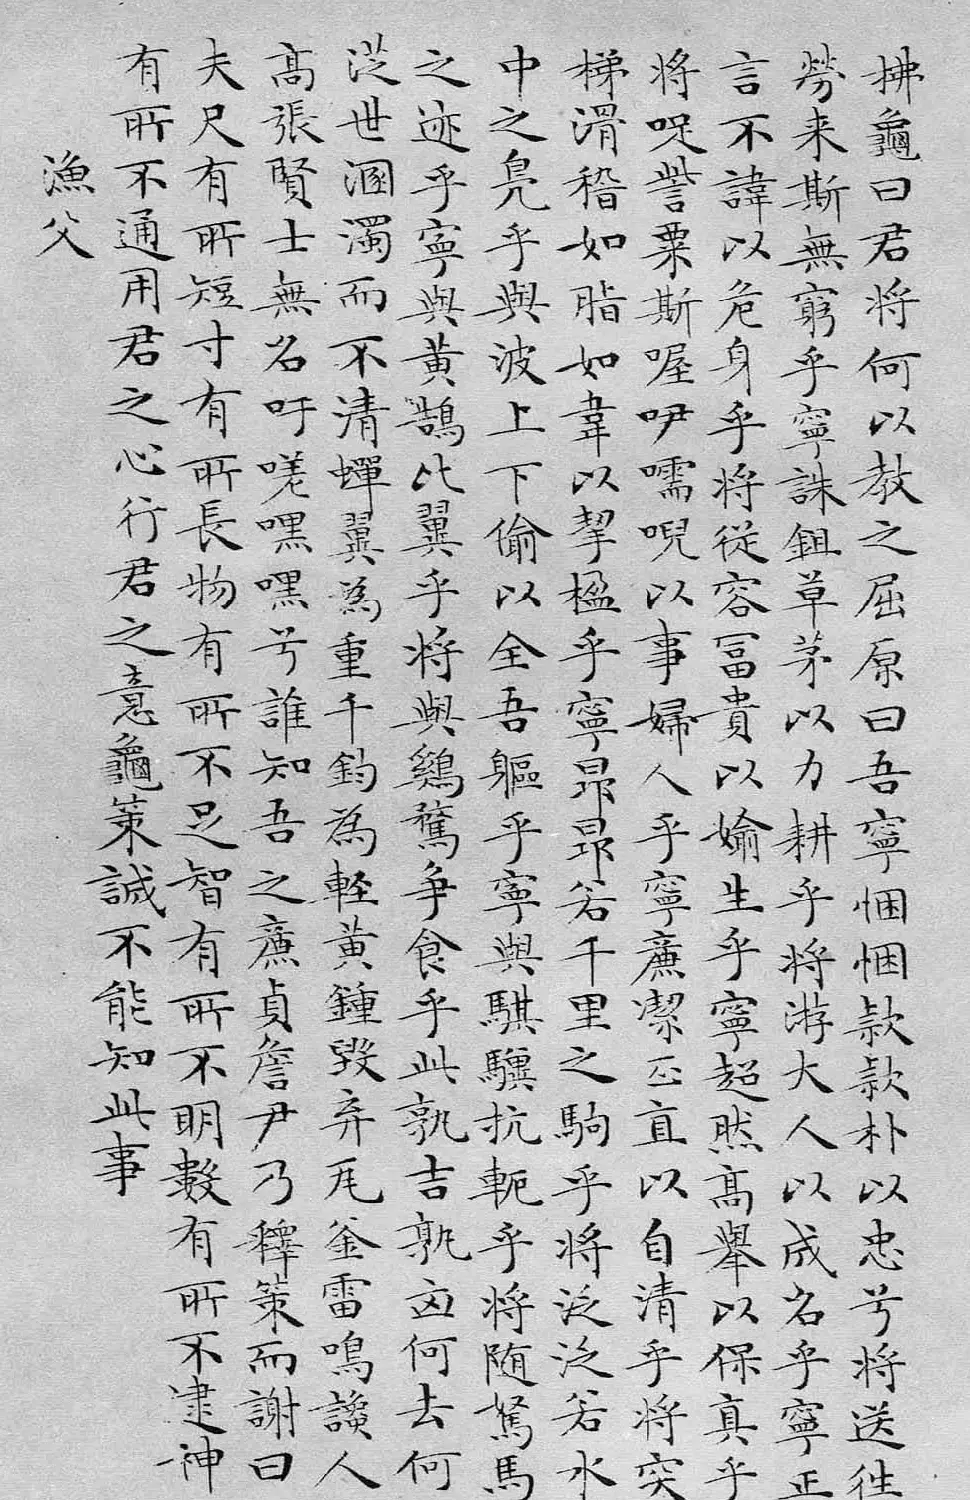 拂龜曰君将何以教之屈原曰吾寧悃悃款款朴以忠兮将送往
勞来斯無窮乎寧誅鉏草茅以力耕乎将游大人以成名乎寧正
言不諱以危身乎将從容冨貴以媮生乎寧超然高舉以保真乎
将哫訾粟斯喔咿嚅唲以事婦人乎寧廉潔正直以自清乎将突
梯滑稽如脂如韋以挈楹乎寧昂昂若千里之駒乎将泛泛若水
中之鳧乎與波上下偷以全吾軀乎寧與騏驥抗軛乎将随駑馬
之迹乎寧與黄鵠比翼乎将與鷄鶩争食乎此孰吉孰凶何去何
從世溷濁而不清蟬翼為重千鈞為軽黄鍾毀弃瓦釜雷鳴讒人
高張賢士無名吁嗟嘿嘿兮誰知吾之廉貞詹尹乃釋策而謝曰
夫尺有所短寸有所長物有所不足智有所不明數有所不逮神
有所不通用君之心行君之意龜策誠不能知此事
漁父